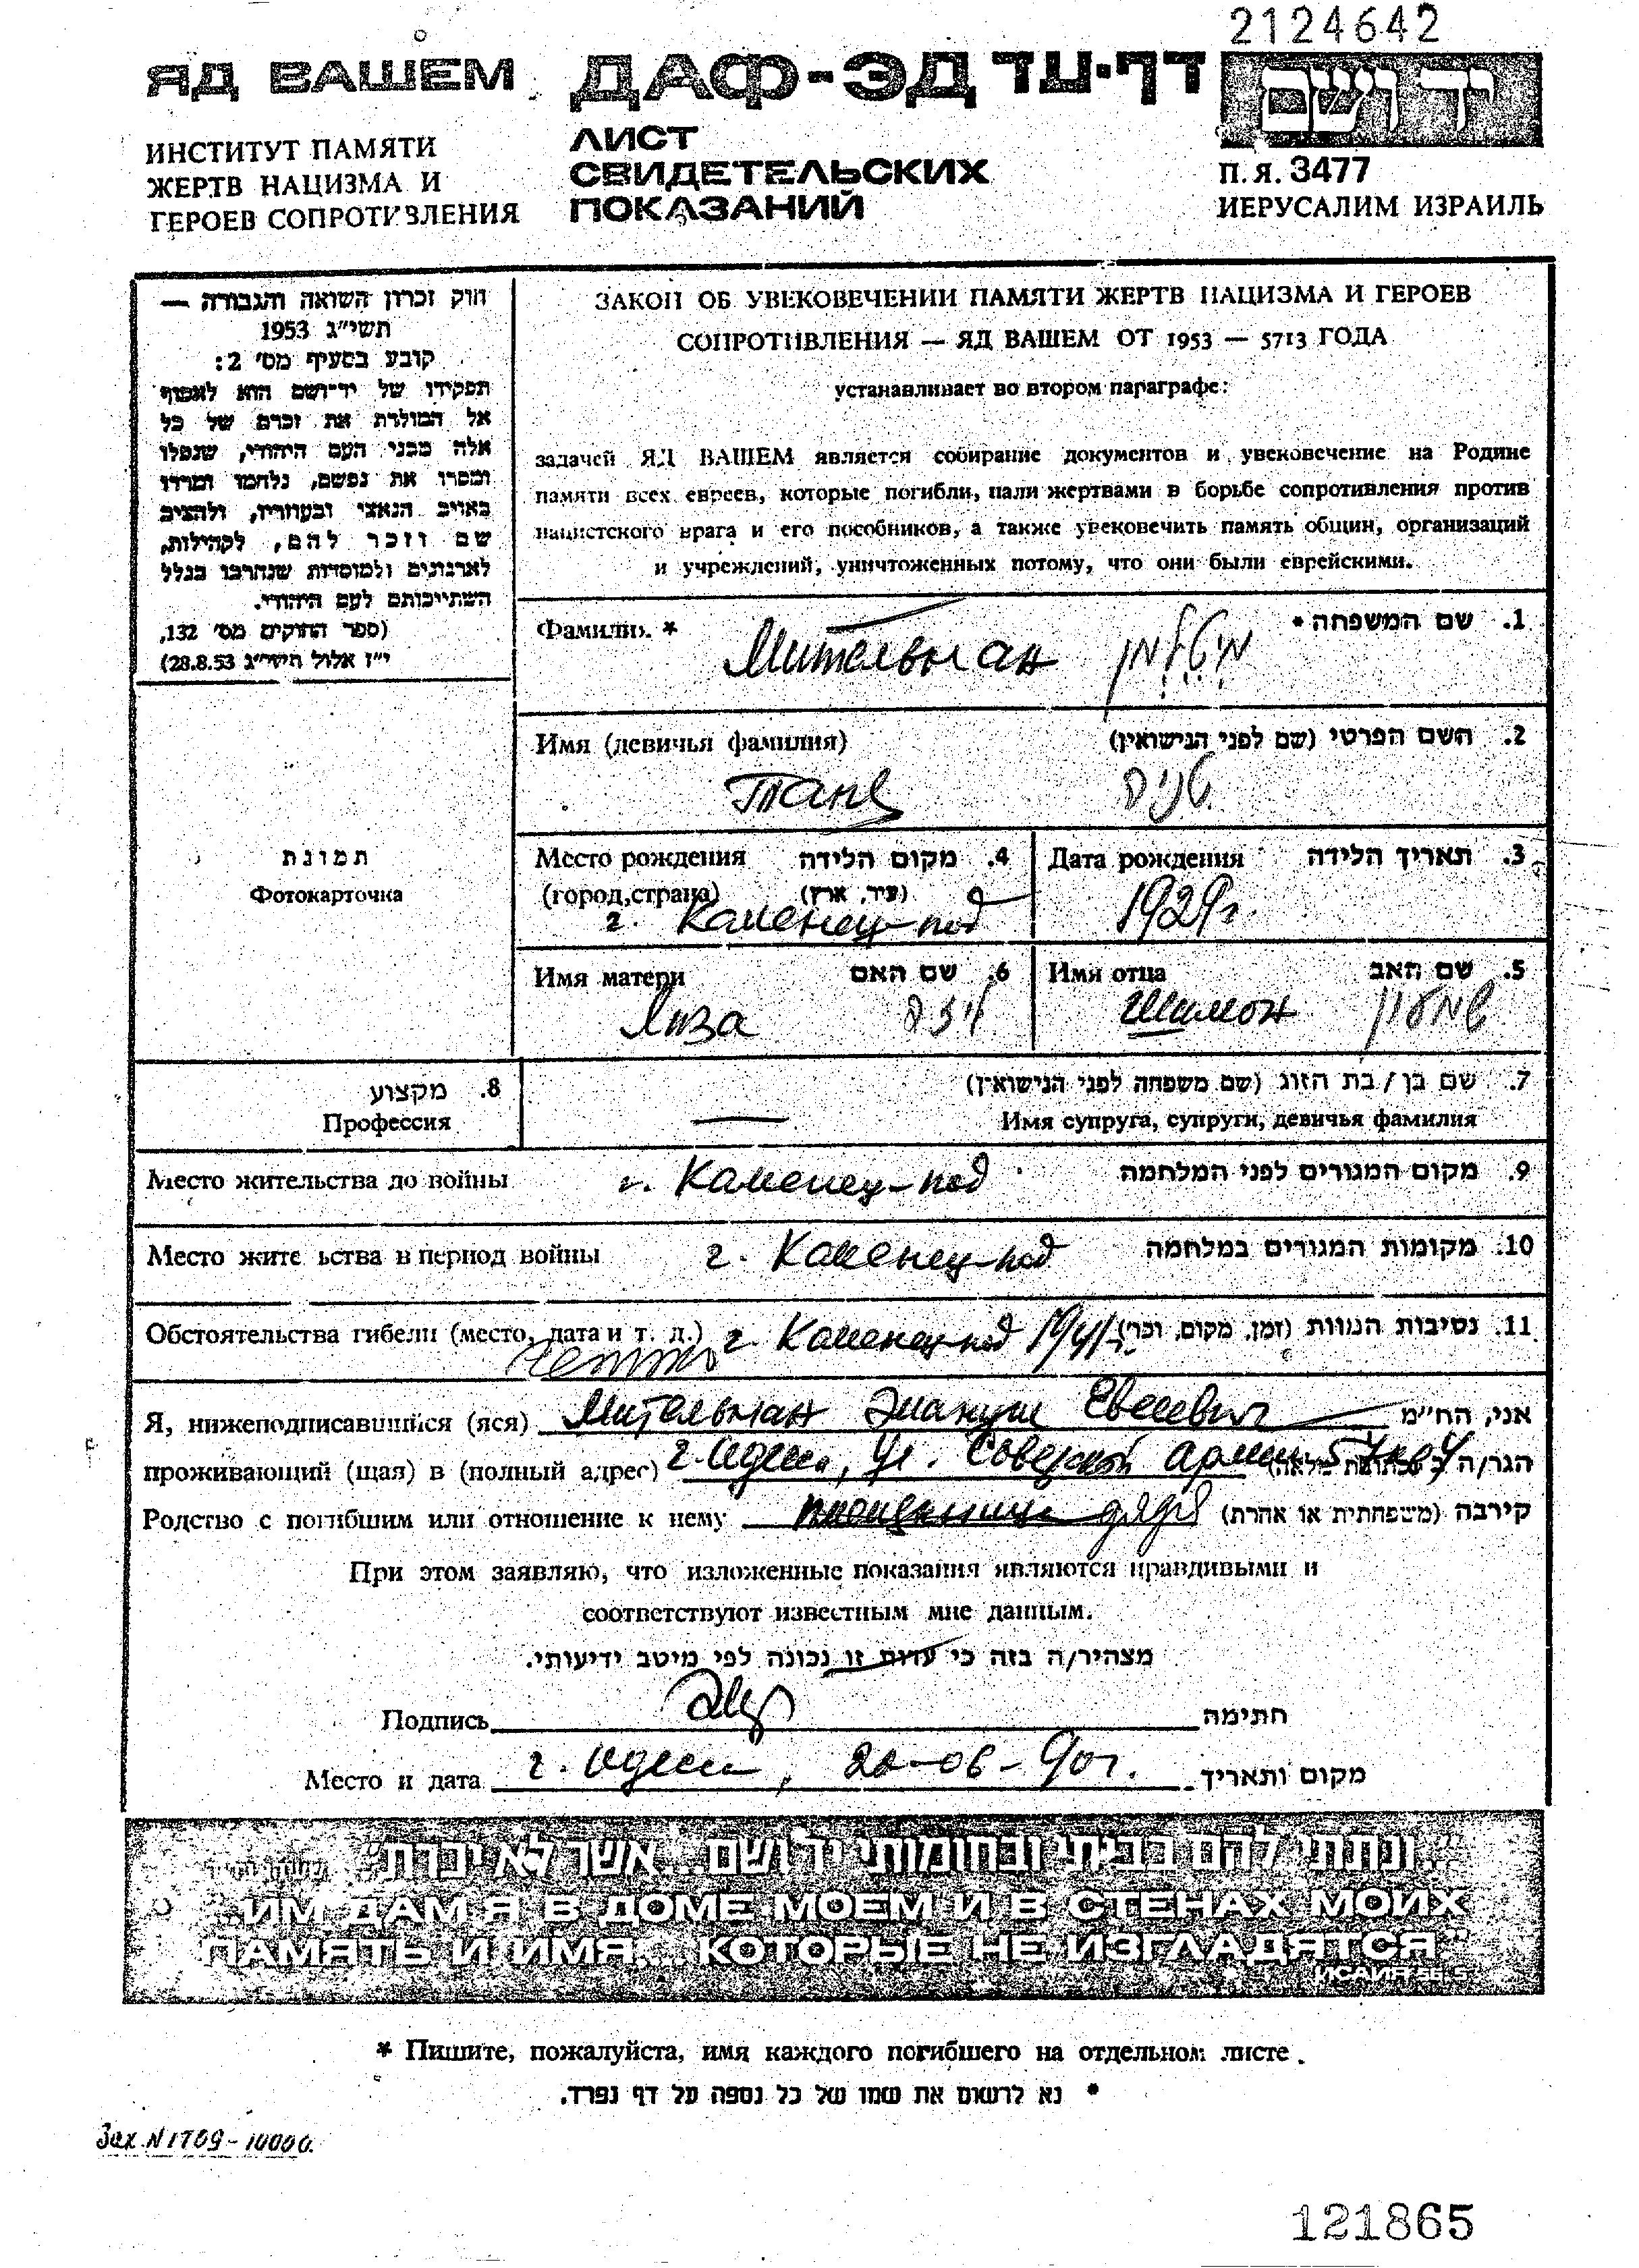 2124642
ЯД ВАШЕМ ДАФ-ЭД דף-עד יד ושם
ИНСТИТУТ ПАМЯТИ
ЖЕРТВ НАЦИЗМА И
ГЕРОЕВ СОПРОТИВЛЕНИЯ
ЛИСТ
СВИДЕТЕЛЬСКИХ
ПОКАЗАНИЙ
П.Я. 3477
ИЕРУСАЛИМ ИЗРАИЛЬ
חוק זכרון השואה והגבורה —
תשי"ג 1953
קובע בסעיף מס' 2:
תפקידו של יד-ושם הוא לאסוף
אל המולדת את זכרם של כל
אלה מבני העם היהודי, שנפלו
ומסרו את נפשם, נלחמו ומרדו
באויב הנאצי ובעוזריו, ולהציב
שם וזכר להם, לקהילות,
לארגונים ולמוסדות שנחרבו בגלל
השתייכותם לעם היהודי.
(ספר החוקים מס' 132,
י"ז אלול תשי"ג 28.8.53)
ЗАКОН ОБ УВЕКОВЕЧЕНИИ ПАМЯТИ ЖЕРТВ НАЦИЗМА И ГЕРОЕВ
СОПРОТИВЛЕНИЯ — ЯД ВАШЕМ ОТ 1953 — 5713 ГОДА
устанавливает во втором параграфе:
задачей ЯД ВАШЕМ является собирание документов и увековечение на Родине
памяти всех евреев, которые погибли, пали жертвами в борьбе сопротивления против
нацистского врага и его пособников, а также увековечить память общин, организаций
и учреждений, уничтоженных потому, что они были еврейскими.
Фамилия * 1. שם המשפחה *
Мительман מיטלמן
Имя (девичья фамилия) 2. השם הפרטי (שם לפני הנישואין)
Таня טניה
תמונת
Фотокарточка
Место рождения 4. מקום הלידה
(город,страна) (עיר, ארץ)
г. Каменец-под
Дата рождения 3. תאריך הלידה
1929г.
Имя матери 6. שם האם
Лиза ליזה
Имя отца 5. שם האב
Шимон שמעון
8. מקצוע
Профессия
7. שם בן/בת הזוג (שם משפחה לפני הנישואין)
— Имя супруга, супруги, девичья фамилия
Место жительства до войны г. Каменец-под 9. מקום המגורים לפני המלחמה
Место жите ьства в период войны г. Каменец-под 10. מקומות המגורים במלחמה
Обстоятельства гибели (место, дата и т. д.) г. Каменец-под 1941г. 11. נסיבות המוות (זמן, מקום, וכו')
гетто
Я, нижеподписавшийся (яся) Мительман Эмануил Евсеевич אני, הח"מ
проживающий (щая) в (полный адрес) г. Одесса, ул. Советской Армии הגר/ה ב (כתובת מלאה)
Родство с погибшим или отношение к нему дядя קירבה (משפחתית או אחרת)
При этом заявляю, что изложенные показания являются правдивыми и
соответствуют известным мне данным.
מצהיר/ה בזה כי עדות זו נכונה לפי מיטב ידיעותי.
Подпись חתימה
Место и дата г. Одесса, 20-06-90г. מקום ותאריך
"...ונתתי להם בביתי ובחומותי יד ושם...אשר לא יכרת"
"...ИМ ДАМ Я В ДОМЕ МОЕМ И В СТЕНАХ МОИХ
ПАМЯТЬ И ИМЯ... КОТОРЫЕ НЕ ИЗГЛАДЯТСЯ."
* Пишите, пожалуйста, имя каждого погибшего на отдельном листе.
* נא לרשום את שמו של כל נספה על דף נפרד.
Зак. N 1709 - 10000.
121865